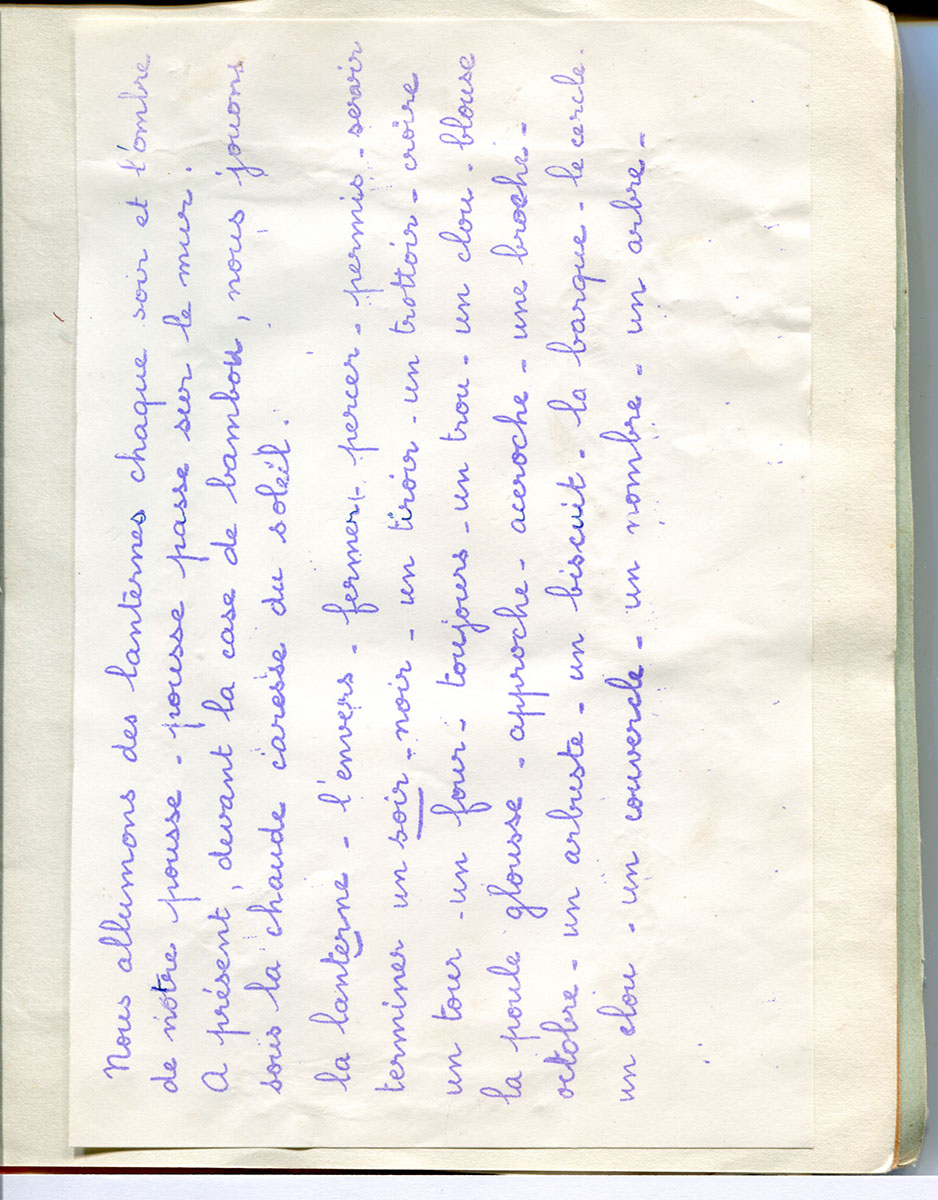 Nous allumons des lanternes chaque soir et l'ombre
de notre pousse-pousse passe sur le mur.
A présent, devant la case de bambou, nous jouons
sous la chaude caresse du soleil.
la lanterne - l'envers - fermer - percer - permis - servir
terminer un soir - noir - un tiroir - un trottoir - croire
un tour - un four - toujours - un trou - un clou - blouse
la poule glousse - approche - accroche - une broche -
octobre - un arbuste - un biscuit - la barque - le cercle.
un chou - un couvercle - un nombre - un arbre -